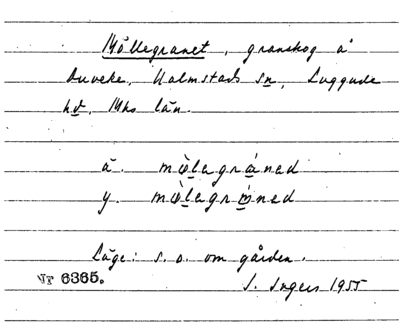 Möllegranet, granskog å
Duveke, Halmstads sn, Luggude
hd, Mhs län.
ä. mø̀lagránad
y. mø̀lagrǿnad
Läge: s.o. om gården.
Nr 6365.
S. Ingers 1955